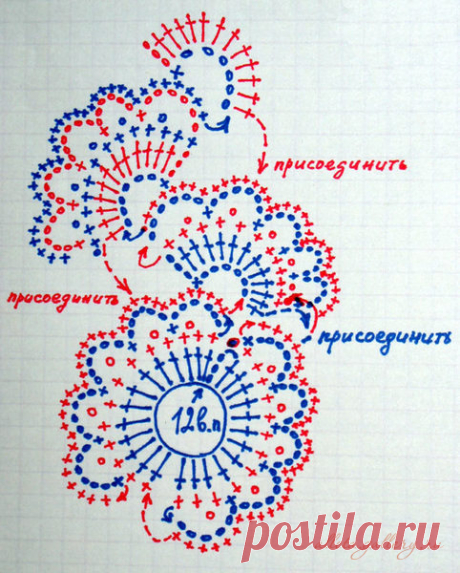 присоединить
присоединить
присоединить
12в.п
postila.ru